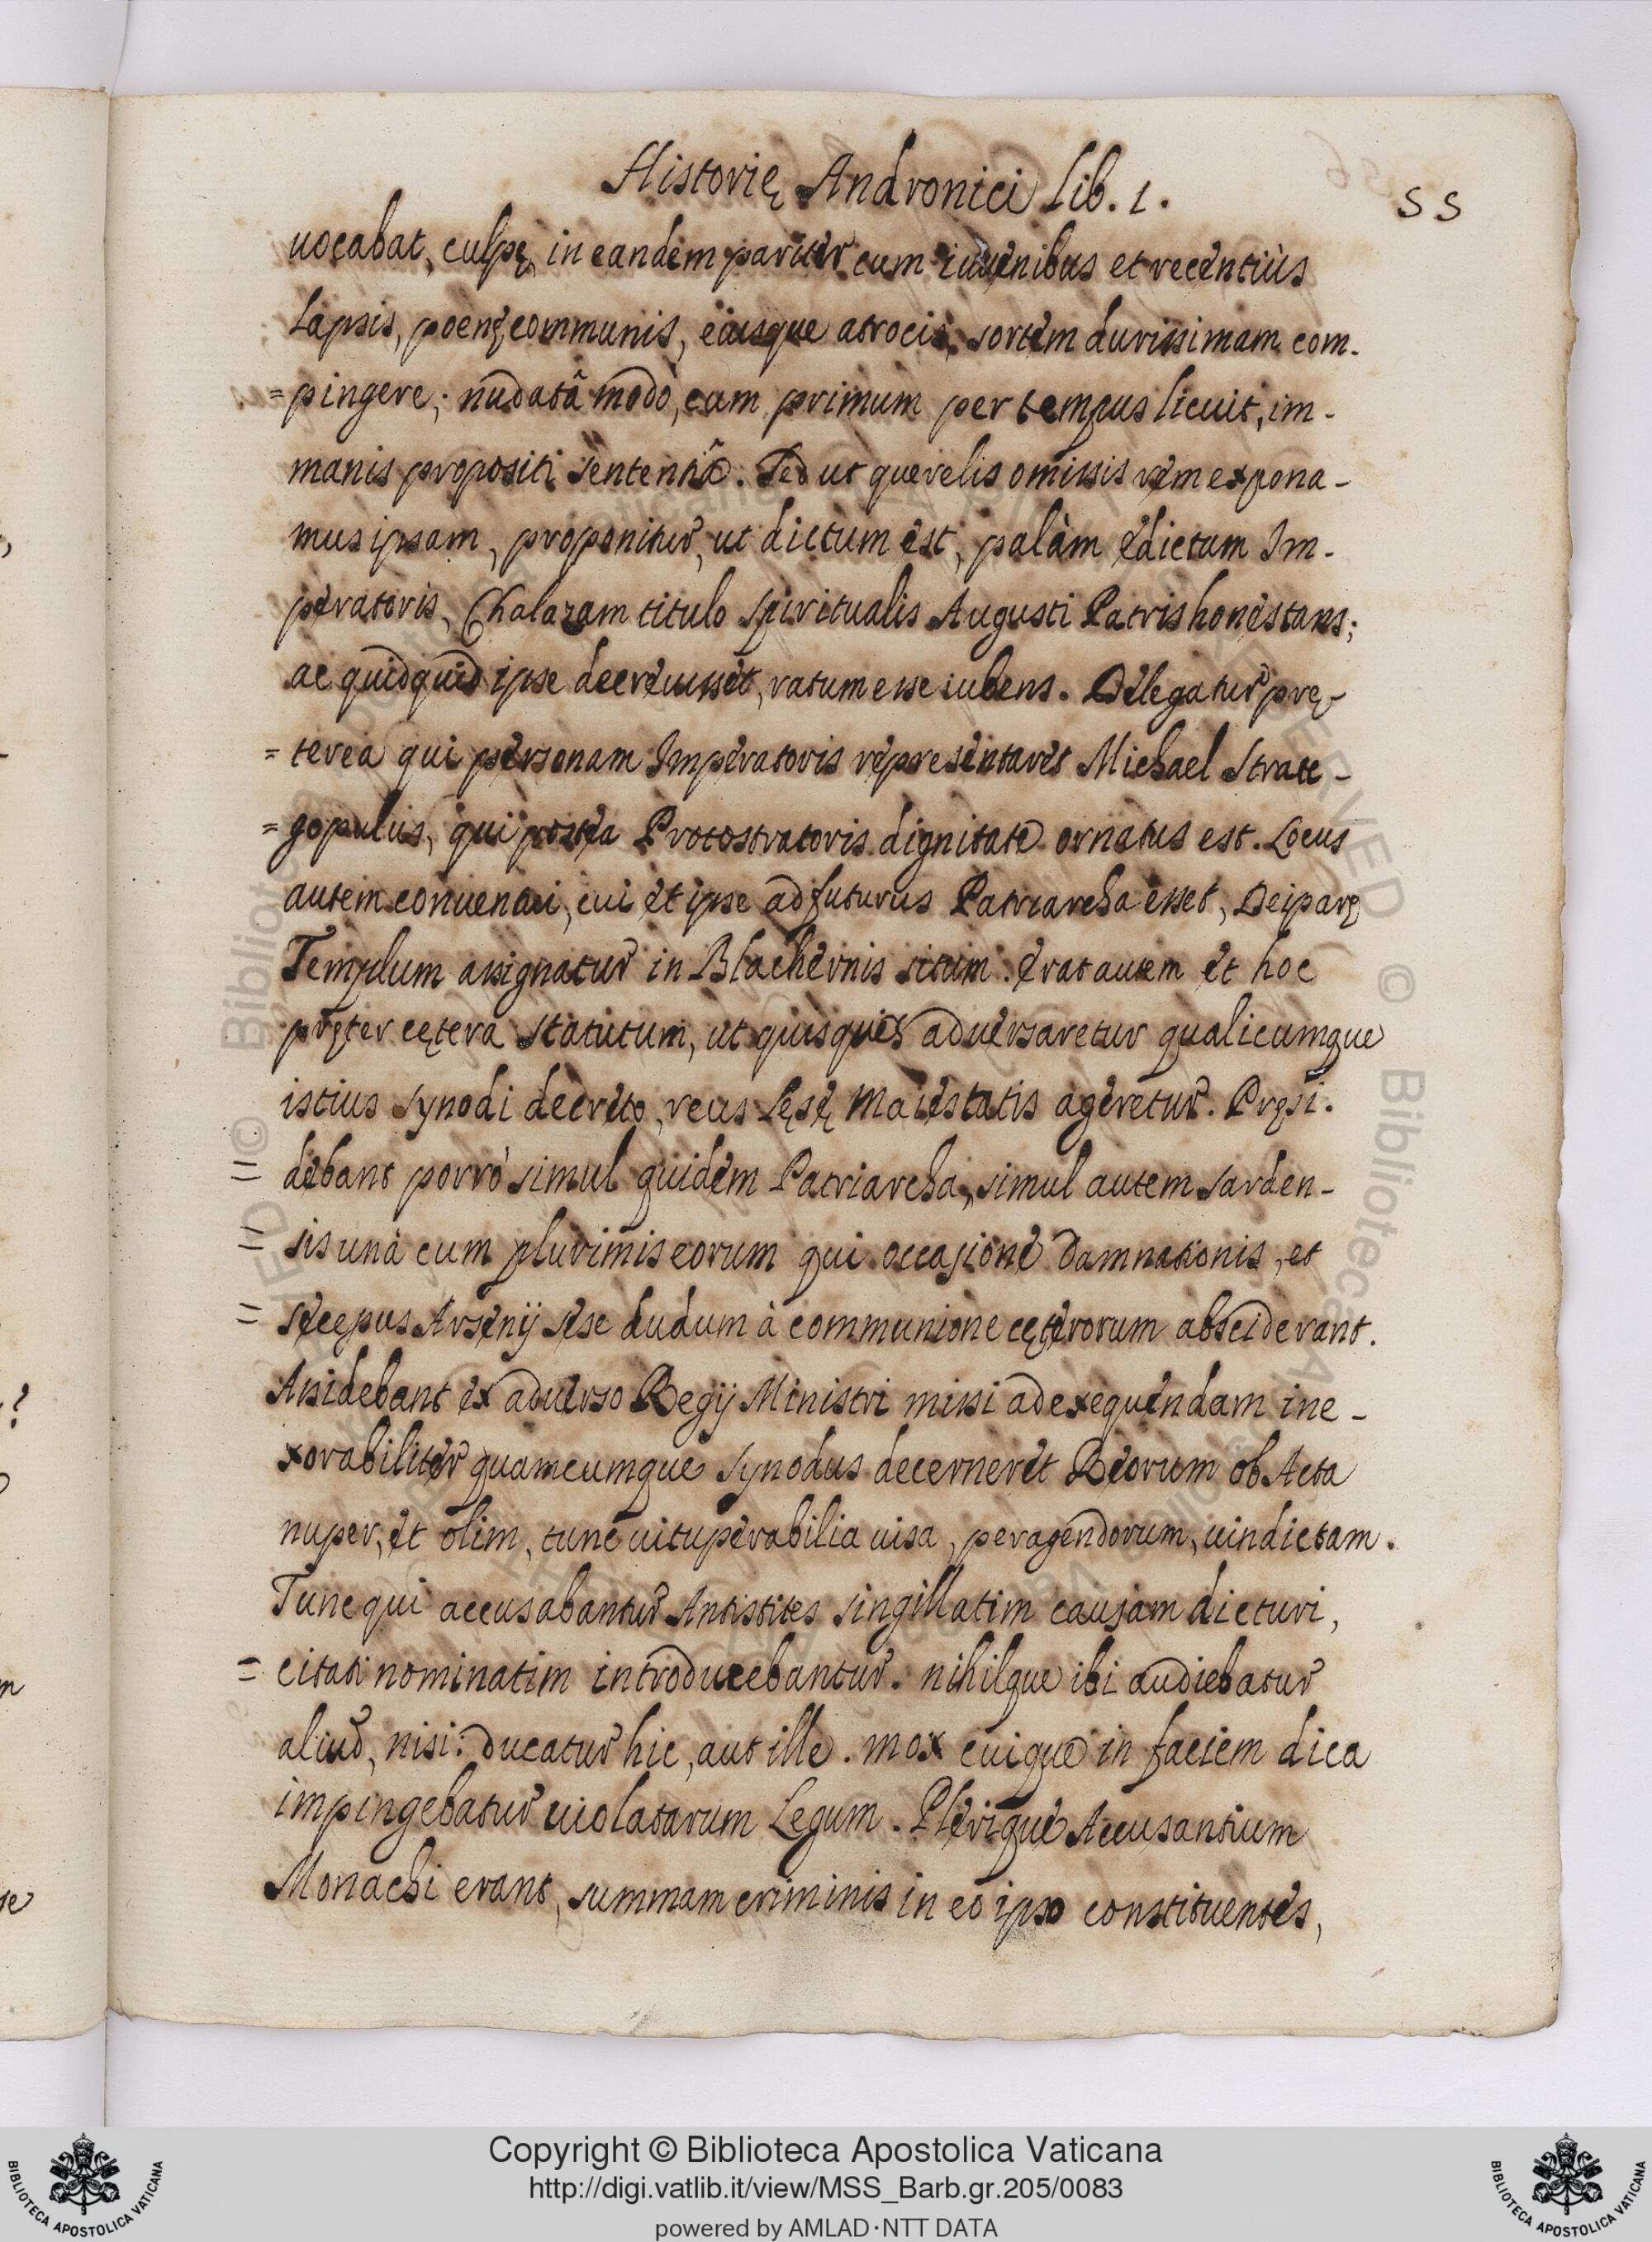 Historię Andronici Lib. 1.
55
uocabat, culpę, in eandem pariter cum iuuenibus et recentiùs
Lapsis, poenę communis, eiusque atrocis, sortem durissimam com-
=pingere; nudatâ modò, cum primum per tempus licuit, im-
manis propositi sententiâ. Sed ut querelis omissis rem expona-
mus ipsam, proponitur, ut dictum est, palàm edictum Im-
peratoris, Chalazam titulo spiritualis Augusti Patris honestans;
ac quidquid ipse decreuisset, ratum esse iubens. Delegatur prę-
=terea qui personam Imperatoris represèntaret Michael Strate-
=gopulus, qui postea Protostratoris dignitate ornatus est. Locus
autem conuentui, cui et ipse adfuturus Patriarcha esset, Deiparę
Templum assignatur in Blachernis situm. erat autem et hoc
pręter cętera statutum, ut quisquis aduersaretur qualicumque
istius synodi decreto, reus Lęsę Maiestatis ageretur. Pręsi-
=debant porrò simul quidem Patriarcha, simul autem Sarden-
=sis unà cum plurimis eorum qui occasione damnationis, et
=secępus Arsenij sese dudum à communione cęterorum absciderant.
Assidebant ex aduerso Regij Ministri missi ad exequendam ine-
xorabiliter quamcumque synodus decerneret Reorum ob Acta
nuper, et olim, tunc uituperabilia uisa, peragendorum, uindictam.
Tunc qui accusabantur Antistites singillatim causam dicturi,
=citati nominatim introducebantur. nihilque ibi audiebatur
aliud, nisi: ducatur hic, aut ille. mox cuique in faciem dica
impingebatur uiolatarum Legum. Plerique Accusantium
Monachi erant, summam criminis in eo ipso constituentes,
Copyright © Biblioteca Apostolica Vaticana
http://digi.vatlib.it/view/MSS_Barb.gr.205/0083
powered by AMLAD·NTT DATA
BIBLIOTECA APOSTOLICA VATICANA
BIBLIOTECA APOSTOLICA VATICANA